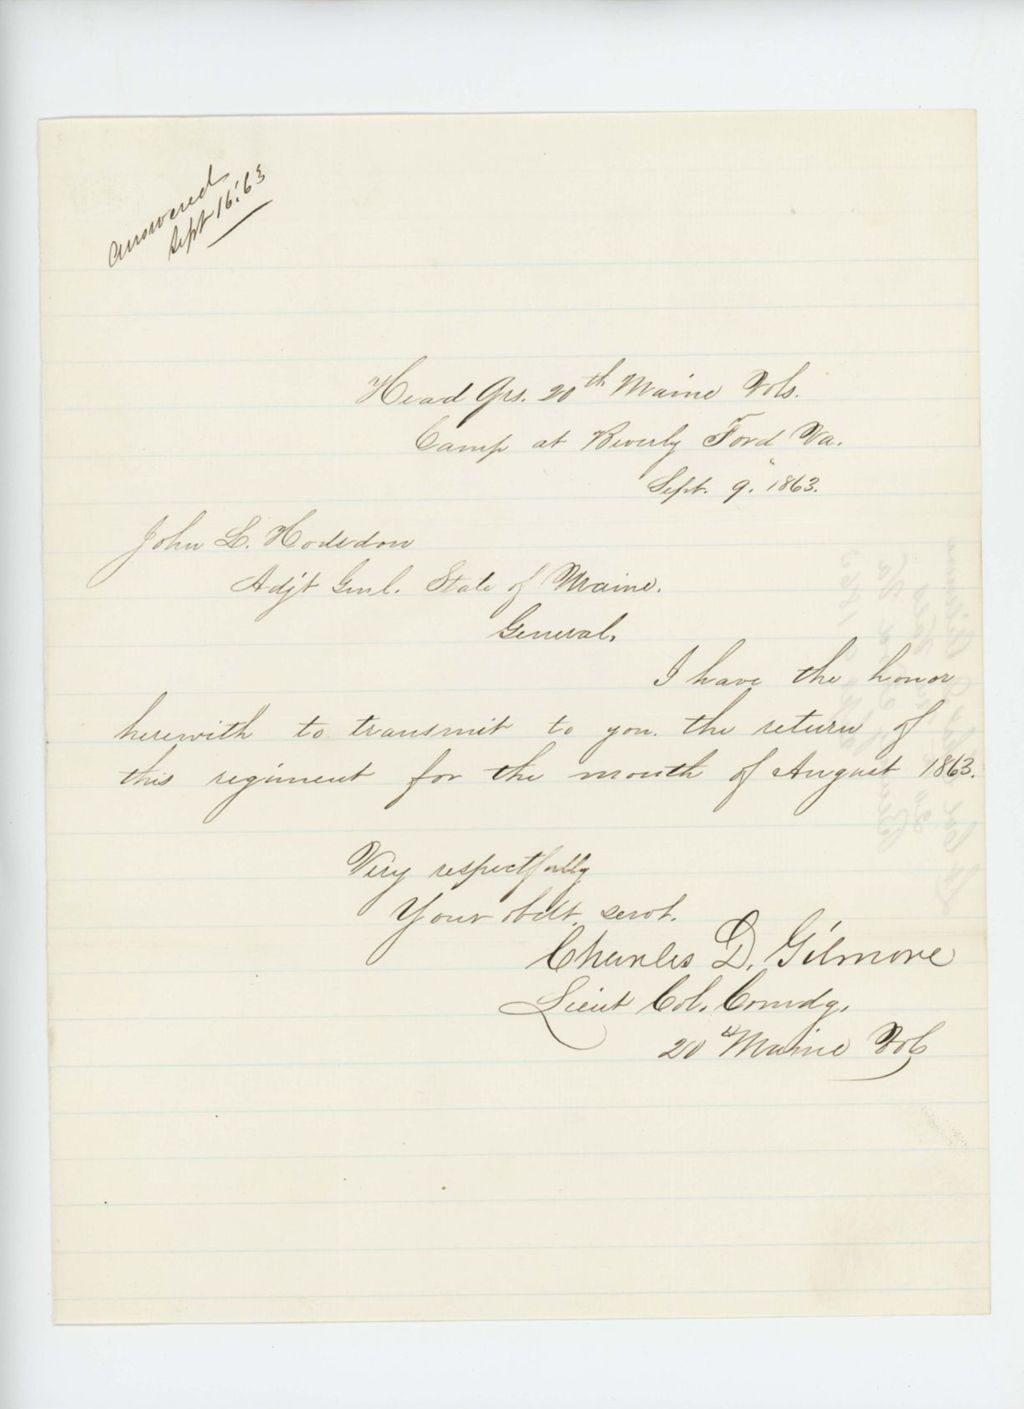 Answered
Sept 16. '63
Head Qrs. 20th Maine Vols.
Camp at Beverly Ford Va.
Sept. 9" 1863.
John L. Hodsdon
Adjt Genl. State of Maine.
General,
I have the honor
herewith to transmit to you. the return of
this regiment for the month of August 1863.
Very respectfully
Your obdt. servt.
Charles D. Gilmore
Lieut Col. Comdg.
20th Maine Vols